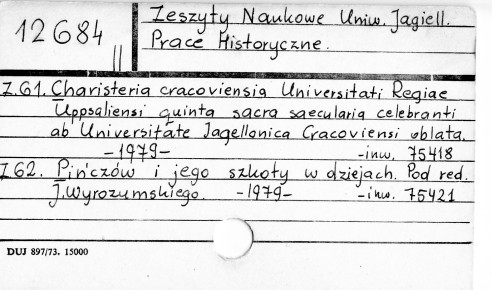 12684 II
Zeszyty Naukowe Uniw. Jagiell.
Prace Historyczne.
Z.61. Charisteria cracoviensia Universitati Regiae
Uppsaliensi quinta sacra saecularia celebranti
ab Universitate Jagellonica Cracoviensi oblata.
-1979- -inw. 75418
Z62. Pińczów i jego szkoły w dziejach. Pod red.
J. Wyrozumskiego. -1979- -inw. 75421
DUJ 897/73. 15000